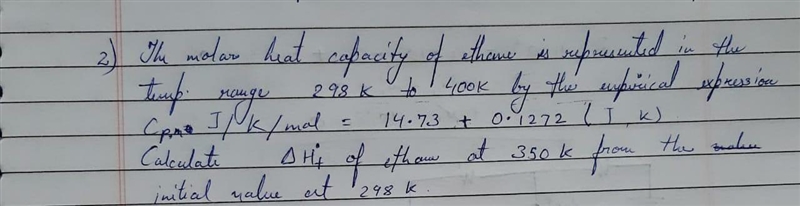 2) The molar heat capacity of ethane is represented in the
temp. range 298 K to 400K by the empirical expression
Cp,m J/K/mol = 14.73 + 0.1272 (T, K)
Calculate ΔH°f of ethane at 350 K from the
initial value at 298 K.